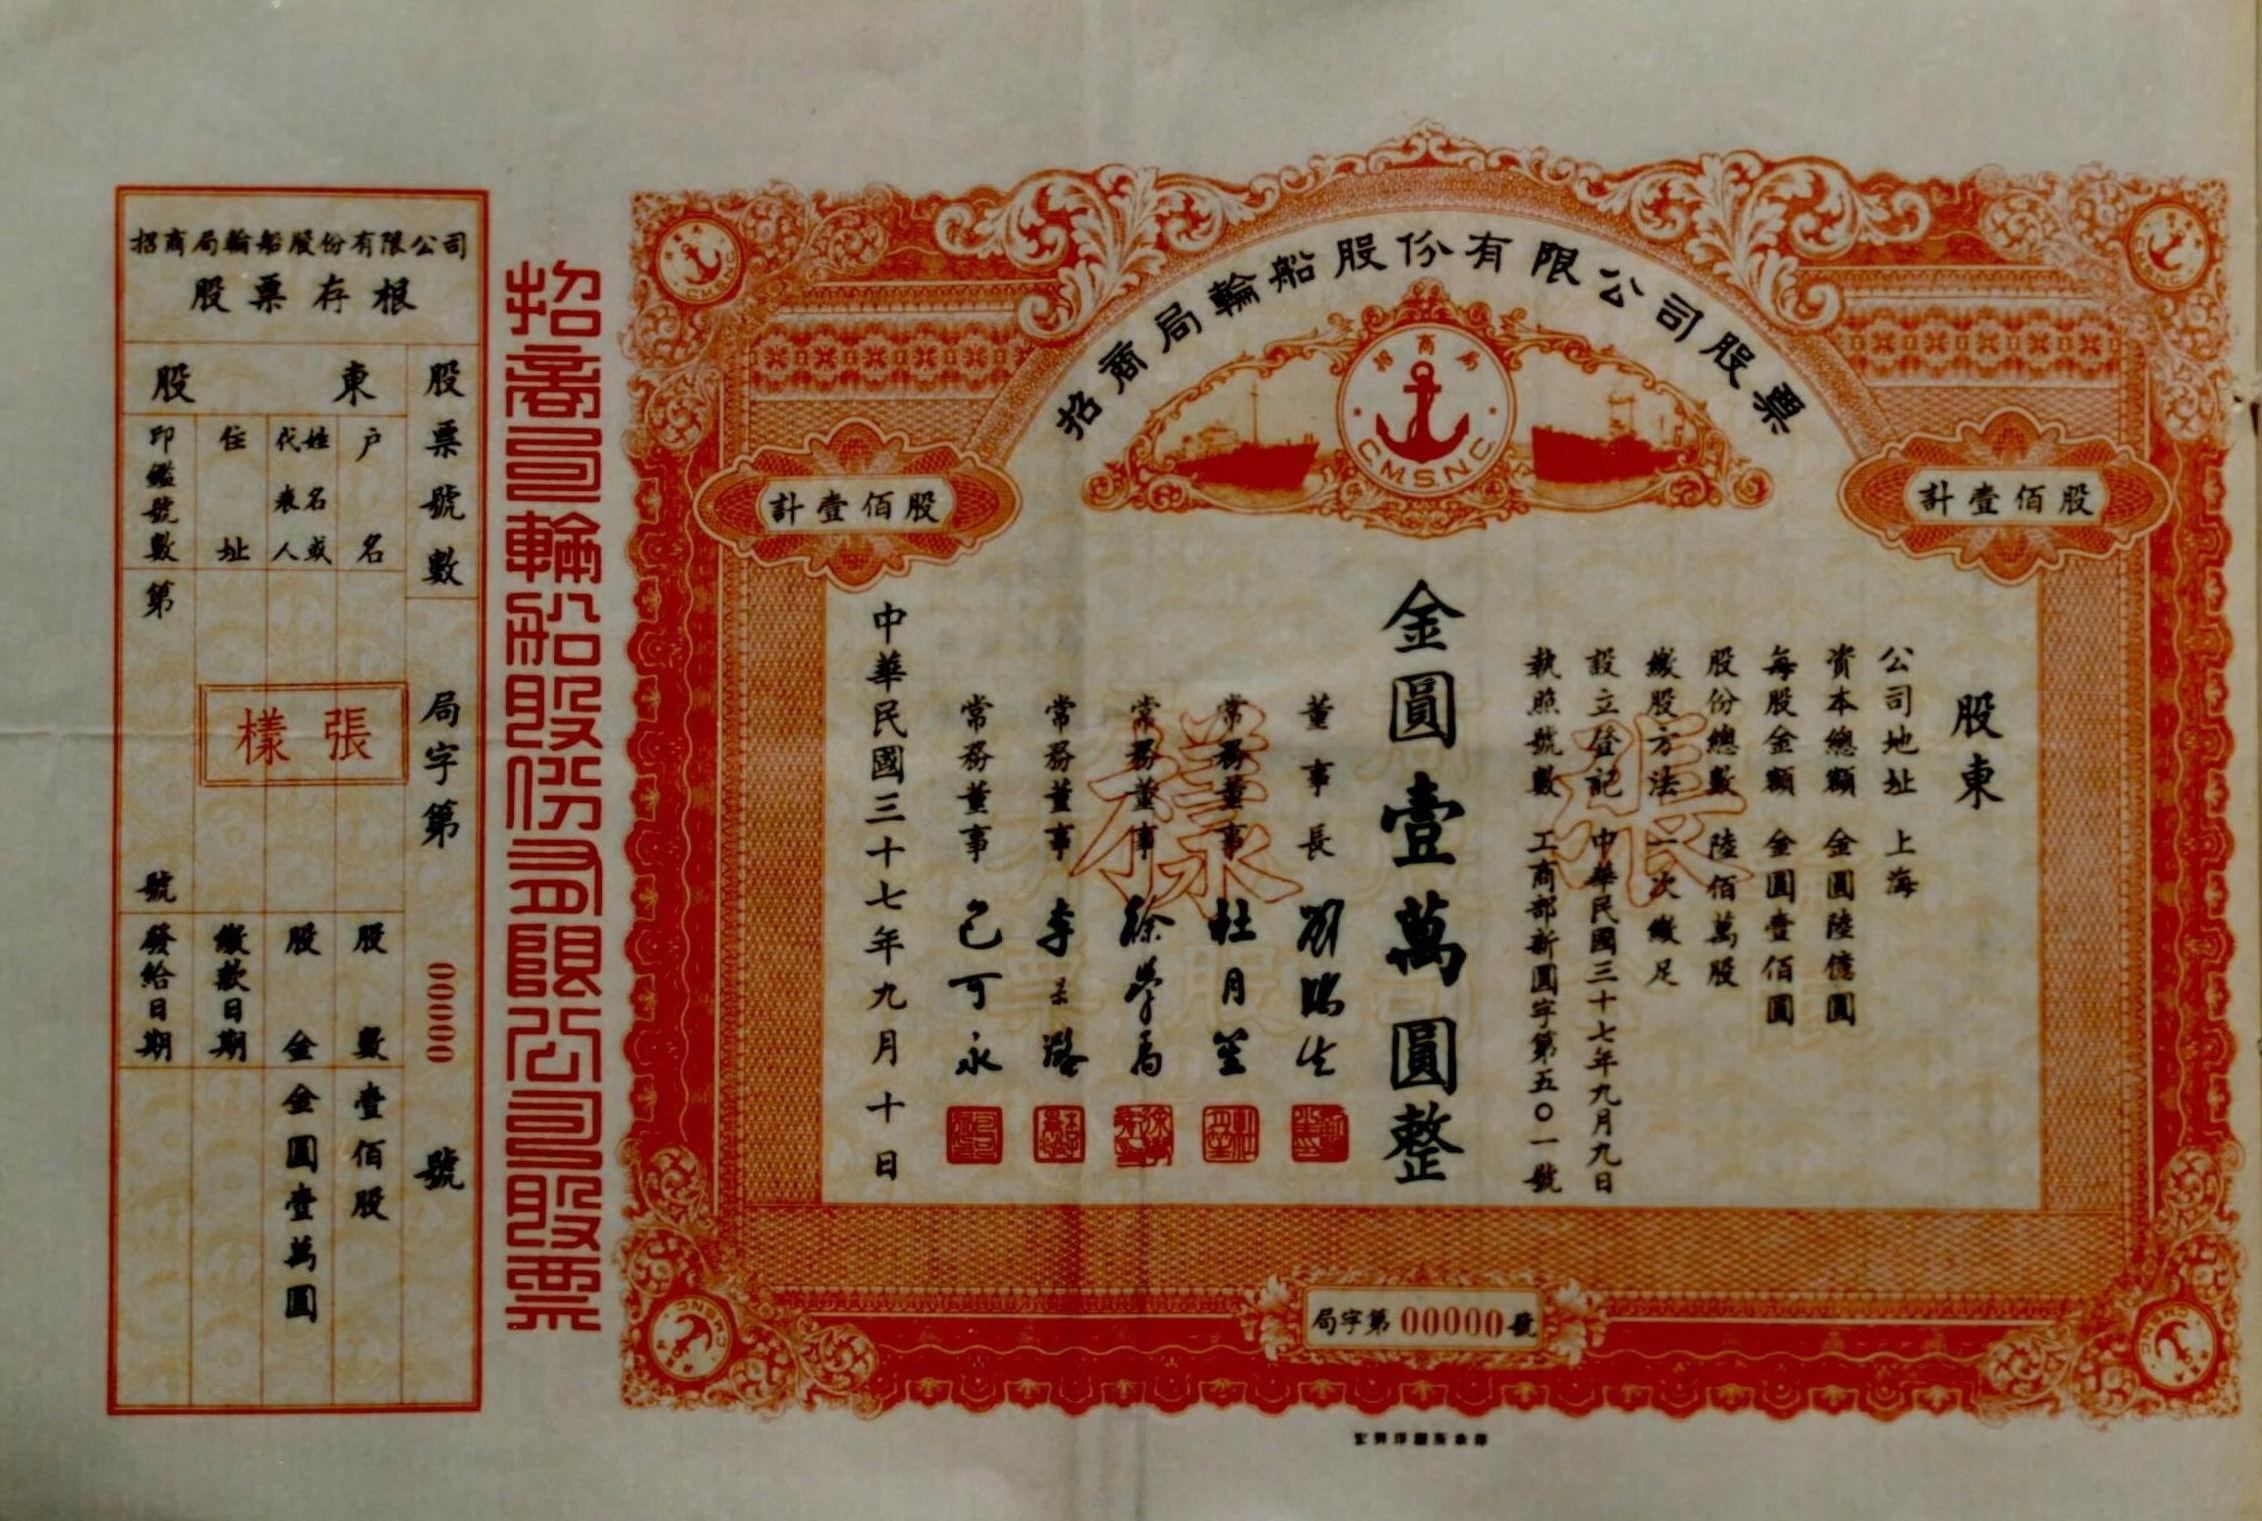 招商局輪船股份有限公司
股票存根
股票號數
局字第 00000 號
股東
戶名
姓名或代表人
住址
印鑑號數
第 號
樣張
股數
壹佰股
股金
金圓壹萬圓
繳款日期
發給日期
招商局輪船股份有限公司股票
招商局輪船股份有限公司股票
招商局
CMSNC
計壹佰股
計壹佰股
股東
公司地址 上海
資本總額 金圓陸億圓
每股金額 金圓壹佰圓
股份總數 陸佰萬股
繳股方法 一次繳足
設立登記 中華民國三十七年九月九日
執照號數 工商部新圓字第五〇一號
金圓壹萬圓整
樣張
董事長 劉鴻生
常務董事 杜月笙
常務董事 徐學禹
常務董事 李
常務董事 包可永
中華民國三十七年九月十日
局字第 00000 號